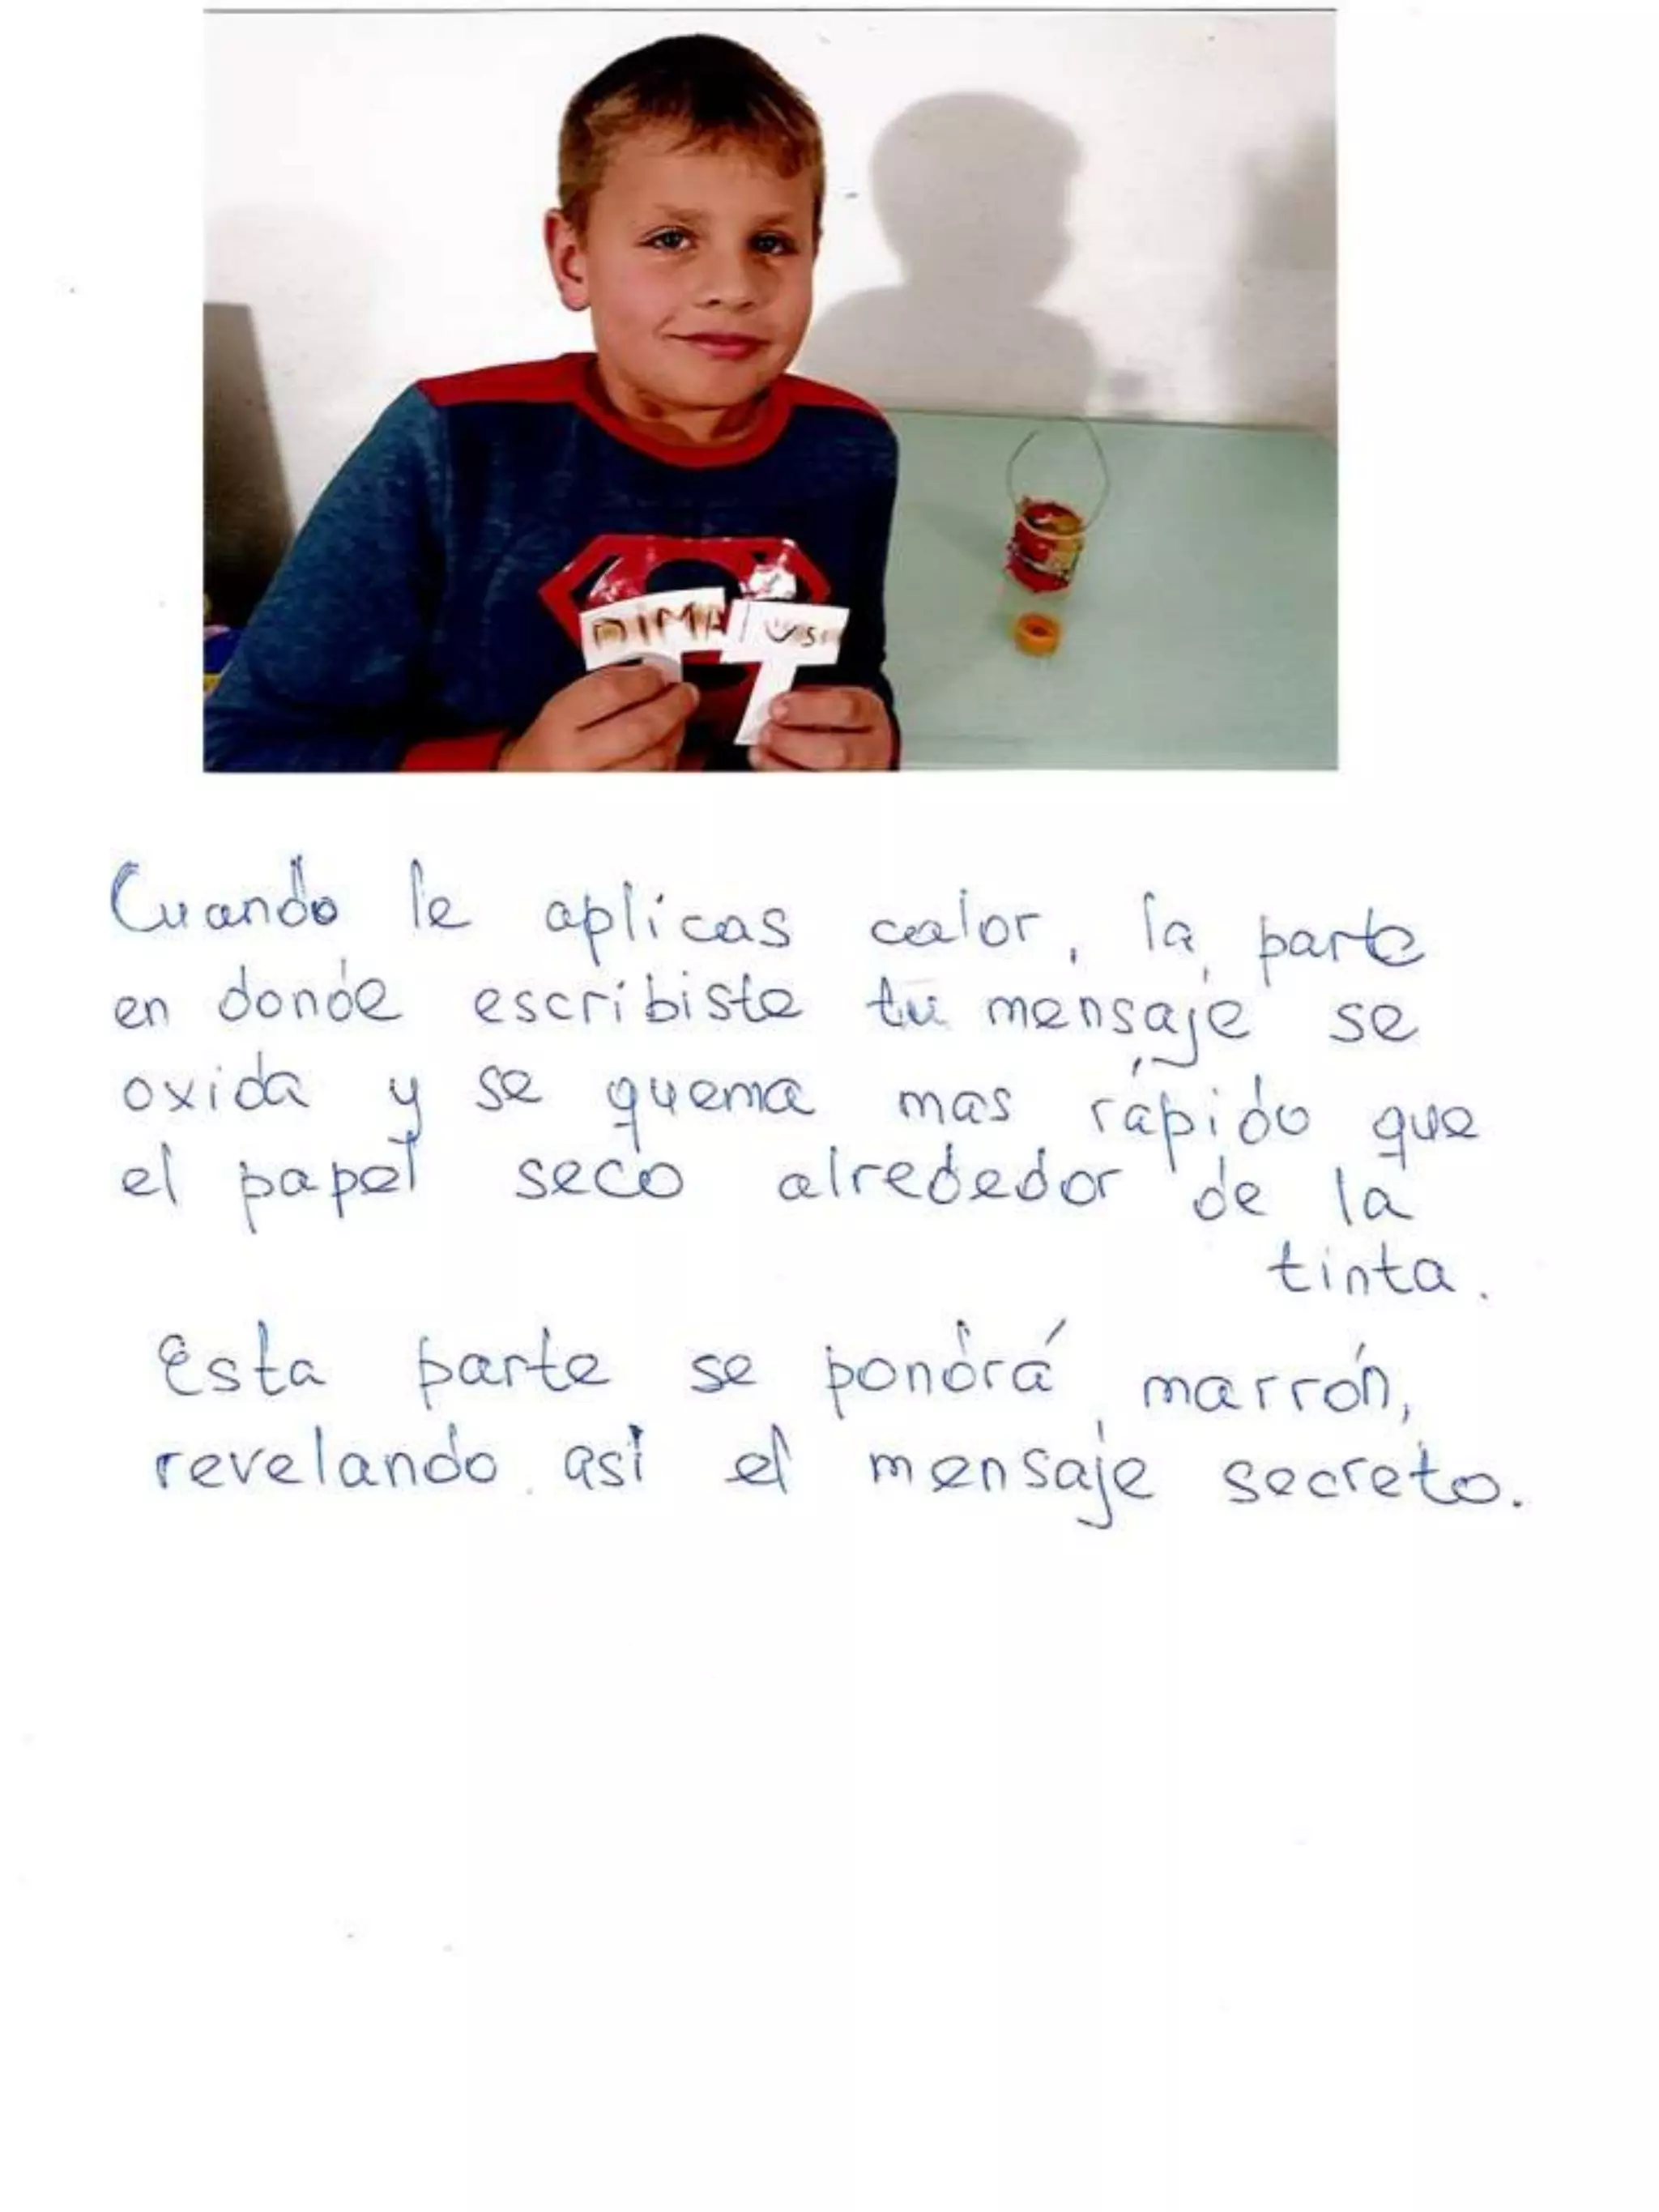 DIMA
Cuando le aplicas calor, la parte
en donde escribiste tu mensaje se
oxida y se quema mas rápido que
el papel seco alrededor de la
tinta.
Esta parte se pondrá marrón,
revelando asi el mensaje secreto.